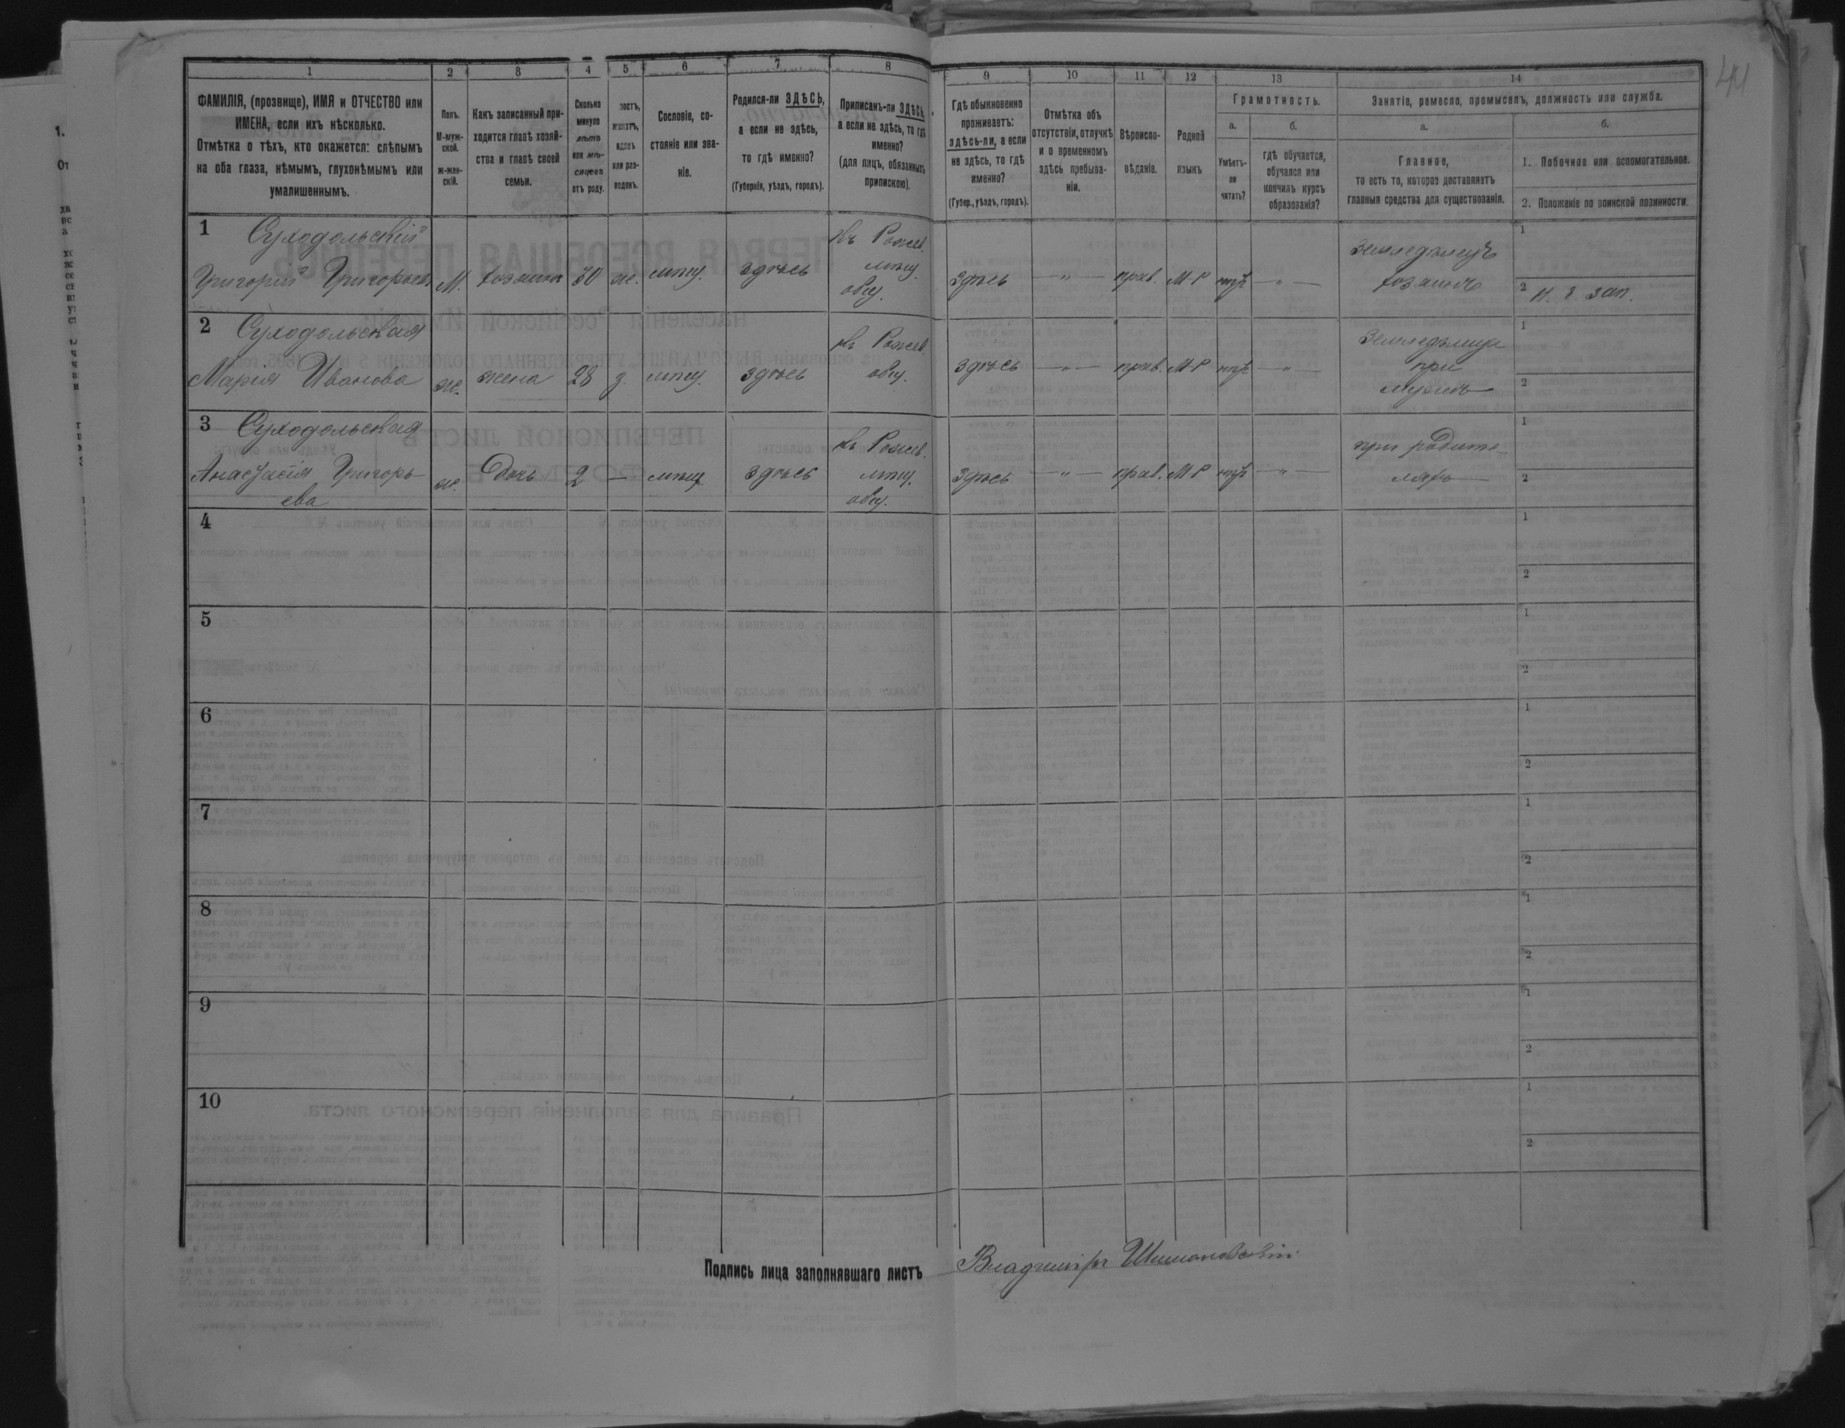 44
1 2 3 4 5 6 7 8 9 10 11 12 13 14
ФАМИЛІЯ, (прозвище), ИМЯ и ОТЧЕСТВО или
ИМЕНА, если ихъ нѣсколько.
Отмѣтка о тѣхъ, кто окажется: слѣпымъ
на оба глаза, нѣмымъ, глухонѣмымъ или
умалишеннымъ.
Полъ.
М-муж-
ской.
ж-жен-
скій.
Какъ записанный при-
ходится главѣ хозяй-
ства и главѣ своей
семьи.
Сколько
минуло
лѣтъ
или мѣ-
сяцевъ
отъ роду.
лостъ,
женатъ,
вдовъ
или раз-
веденъ.
Сословіе, со-
стояніе или зва-
ніе.
Родился-ли ЗДѢСЬ,
а если не здѣсь,
то гдѣ именно?
(Губернія, уѣздъ, городъ).
Приписанъ-ли ЗДѢСЬ,
а если не здѣсь, то гдѣ
именно?
(для лицъ, обязанныхъ
припискою).
Гдѣ обыкновенно
проживаетъ:
здѣсь-ли, а если
не здѣсь, то гдѣ
именно?
(Губер., уѣздъ, городъ).
Отмѣтка объ
отсутствіи, отлучкѣ
и о временномъ
здѣсь пребыва-
ніи.
Вѣроиспо-
вѣданіе.
Родной
языкъ
Грамотность.
а. б.
Умѣетъ-
ли
читать?
гдѣ обучается,
обучался или
кончилъ курсъ
образованія?
Занятіе, ремесло, промыселъ, должность или служба.
а. б.
Главное,
то есть то, которое доставляетъ
главныя средства для существованія.
1. Побочное или вспомогательное.
2. Положеніе по воинской повинности.
1 Суходольскій
Григорій Григорьевъ М. хозяинъ 30 ж. мѣщ. здѣсь
Къ Рожев.
мѣщ.
общ.
здѣсь — „ — прав. М Р нѣтъ — „ —
Земледѣлецъ
хозяинъ
1
2 н. г. зап.
2 Суходольская
Марія Иванова ж. жена 28 з. мѣщ. здѣсь
къ Рожев.
общ.
здѣсь — „ — прав. М Р нѣтъ — „ —
Земледѣлица
при
мужѣ
1
2
3 Суходольская
Анастасія Григорь-
ева
ж. Дочь 2 — мѣщ. здѣсь
къ Рожев.
мѣщ.
общ.
здѣсь — „ — прав. М Р нѣтъ — „ —
при родите-
ляхъ
1
2
4
1
2
5
1
2
6
1
2
7
1
2
8
1
2
9
1
2
10
1
2
Подпись лица заполнявшаго листъ Владиміръ